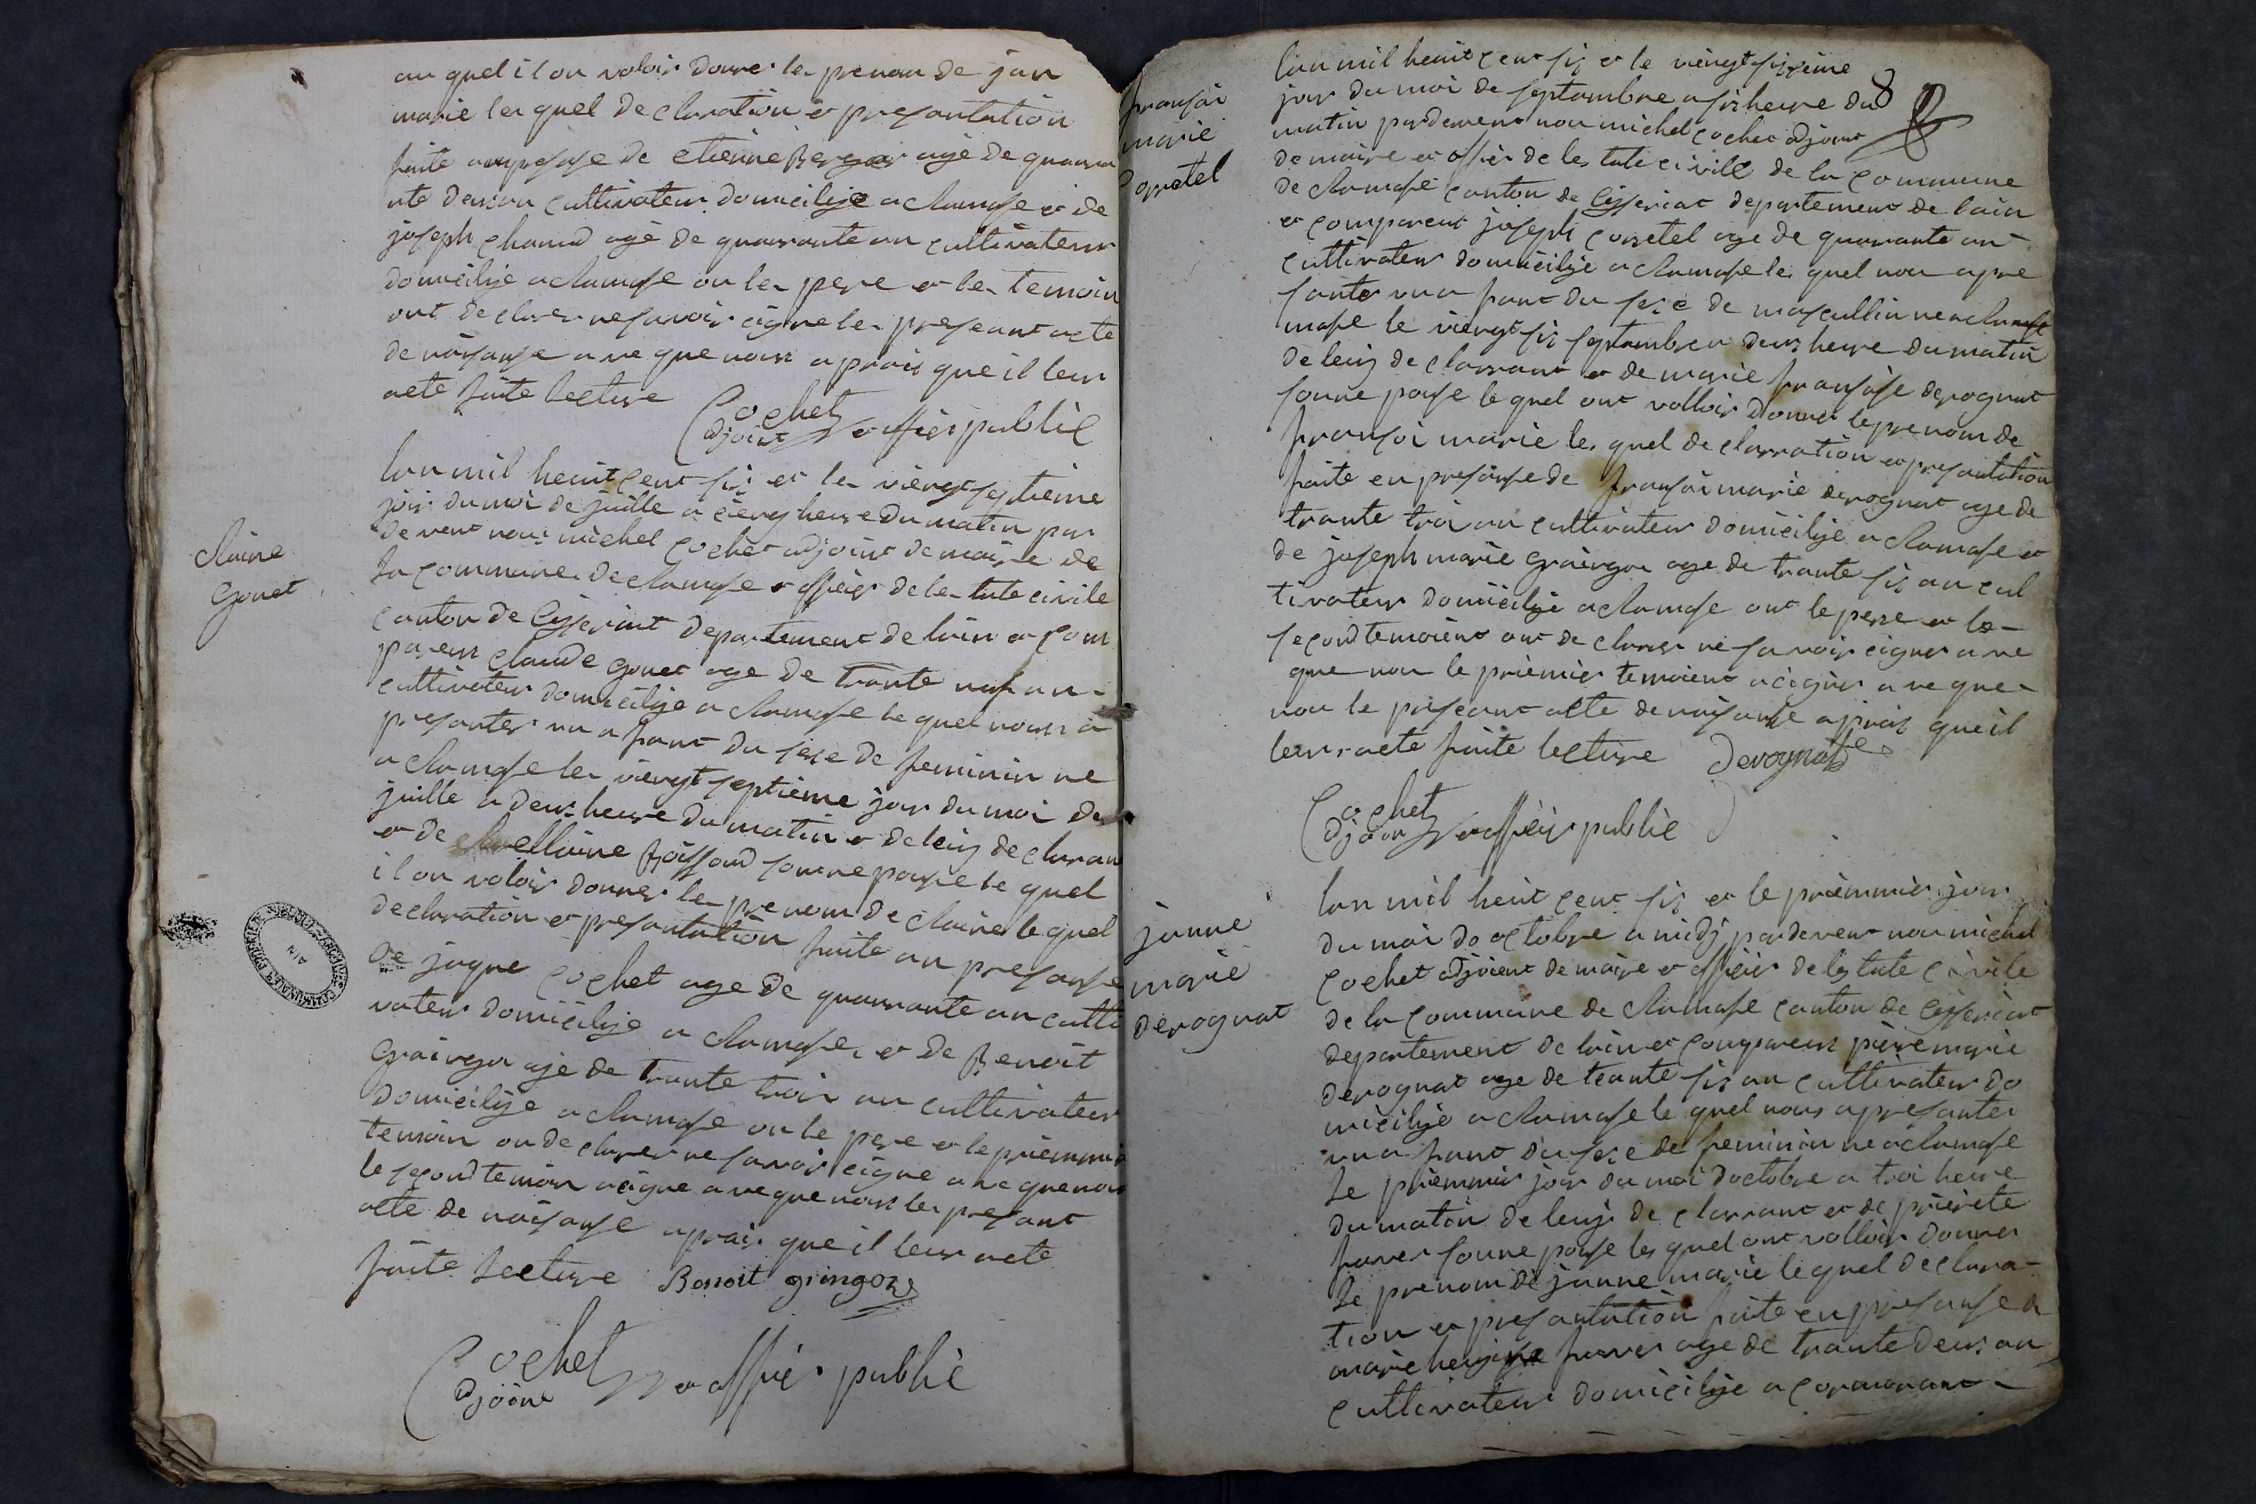 au quel il on voloir donner le prenom de jan
marie le quel declaration et presantation
faite an presase de etienne Berger agé de quara
nte deux an cultivateur domicilije a clamase et de
joseph chanud agé de quarante an cultivateur
domicilije a clamase on le pere et le temoin
ont declarer ne savoir cigne le preseant acte
de naisanse a ve que nous aprais que il leur
aete faite lecture
Cochet
adjoint et offier public
Claire
gonet
lan mil heuit cent six et le viengt septieme
jour du moi de juille a cienq heure du matin par
devent nous michel Cochet adjoint de maire de
la commune de clamase et offieir de le tate civile
canton de Ceyseriat departement de lain et com
parens claude gonet age de trante nuf an
cultivateur domicilije a clamase le quel nous a
presanter un a fant du sexe de feminin ne
a clamase le viengt septieme jour du moi de
juille a deux heure du matin et de leuij declaran
et de claire Roissand sonne pouse le quel
il on voloir donner le prenom de claire le quel
declaration et presantation faite an presanse
de jaque Cochet age de quarrante an culti
vateur domicilije a clamase et de Benoit
graingon aje de trante troi an cultivateur
domicilije a clamase on le pere et le priemmie
temoin on declarer ne savoir cigne a ve que nous
le second temoin acigne a ve que nous le presant
acte de naisanse aprais que il leur aete
faite lecture Benoit gringoz
Cochet
adjoint et offier public
8
fransoi
marie
Convetel
lan mil heuit cent six et le viengt sixieme
jour du moi de septambre a six heure du
matin pardevent nou michel Cochet adjoint
de maire et offier de les tate civill de la commune
de clamase canton de Ceyseriat departement de lain
et comparent joseph Convetel age de quarante an
cultivateur domicilije a clamase le quel nou a pre
santer un a fant du sexe de mascullin ne a clamase
mase le viengt six septambre a deux heure du matin
de leuij declarrant et de marie fransoise derognat
sonne pouse le quel ont volloir donner le prenom de
fransoi marie les quel declarration et presantation
faite en presanse de fransoi marie derognat age de
trante troi an cultivateur domicilije a clamase et
de joseph marie graingon age de trante six an cul
tivateur domicilije a clamase ont le pere et le
second temoient ont declarer ne savoir cigner a ve
que nou le priemier temoient acigner a ve que
nou le preseant acte de naisanse aprais que il
leur aete faite lecture derognat
Cochet
adjoint et offieir public
janne
marie
derognat
lan mil heuit cent six et le priemmier jour
du moi do octobre a midj pardevent nou michel
Cochet adjoient de maire et offieir de les tate civile
de la commune de clamase canton de Ceyseriat
departement de lain et comparens piere marie
derognat age de trante six an cultivateur do
micilije a clamase le quel nous a presanter
un a fant du sexe de feminin ne a clamase
le priemmier jour du moi doctobre a troi heure
du matin de leuij declarrant et de pierete
favier sonne pouse les quel ont volloir donner
le prenom de janne marie le quel declara
tion et presantation faite en presanse a
age de trante deux an
cultivateur domicilije a cormorant